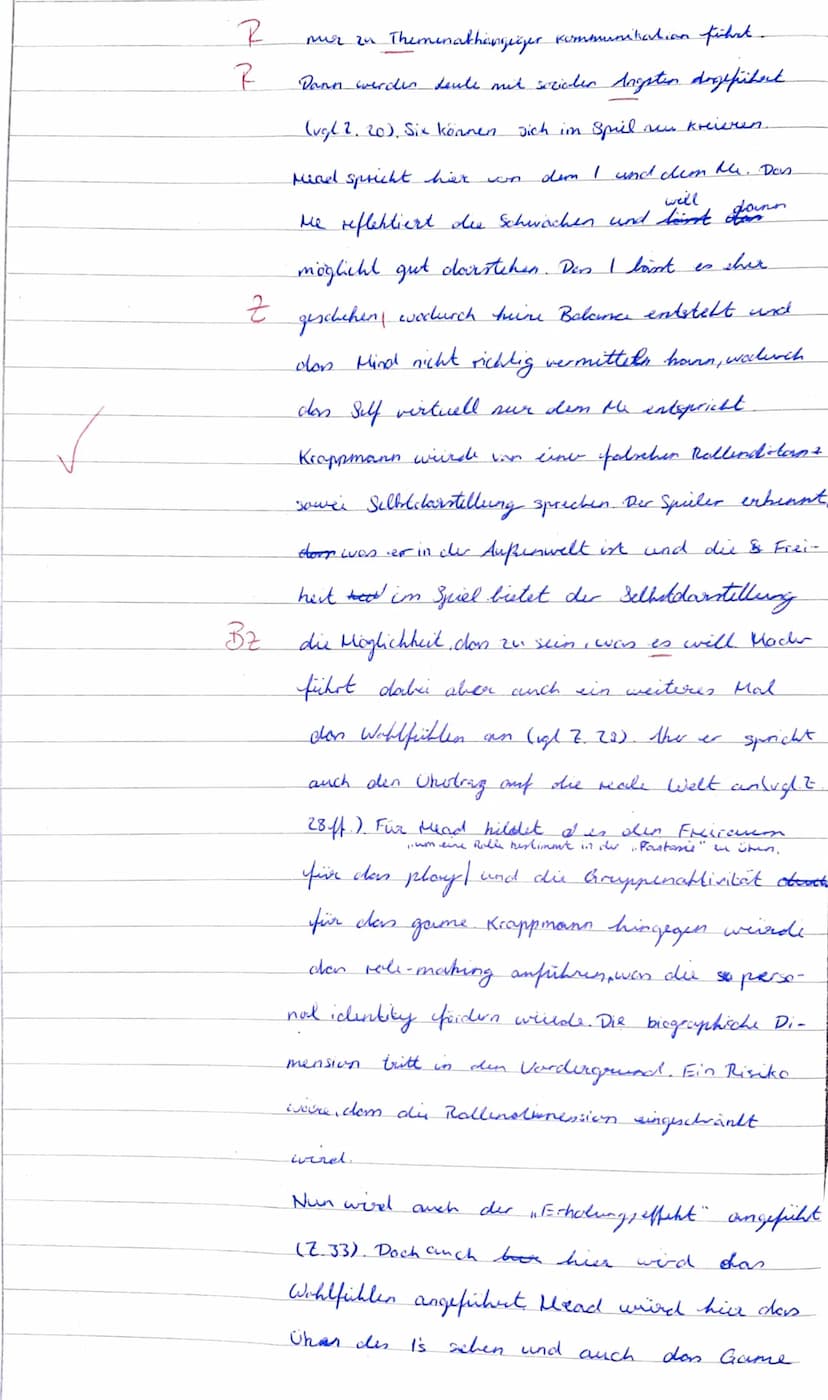 R nur zu Themenabhängiger Kommunikation führt.
R Dann werden Leute mit sozialen Ängsten angeführt
(vgl Z. 20). Sie können sich im Spiel neu kreieren.
Mead spricht hier von dem I und dem Me. Das
Me reflektiert die Schwächen und will dann
möglichst gut darstehen. Das I lässt es eher
Z geschehen, wodurch keine Balance entsteht und
das Mind nicht richtig vermitteln kann, wodurch
das Self virtuell nur dem Me entspricht.
Krappmann würde von einer falschen Rollendistanz
sowie Selbstdarstellung sprechen. Der Spieler erkennt,
was er in der Außenwelt ist und die Frei-
heit im Spiel bietet der Selbstdarstellung
Bz die Möglichkeit, das zu sein, was es will.
führt dabei aber auch ein weiteres Mal
das Wohlfühlen an (vgl Z. 23). Aber er spricht
auch den Übertrag auf die reale Welt an (vgl Z.
28ff.). Für Mead bildet es den Freiraum
„um eine Rolle bestimmt in der „Fantasie" zu üben.
für das play und die Gruppenaktivität
für das game. Krappmann hingegen würde
das role-making anführen, was die perso-
nal identity fördern würde. Die biographische Di-
mension tritt in den Vordergrund. Ein Risiko
wäre, dass die Rollendimension eingeschränkt
wird.
Nun wird auch der „Erholungseffekt" angeführt
(Z. 33). Doch auch hier wird das
Wohlfühlen angeführt. Mead würd hier das
Üben des I's sehen und auch das Game